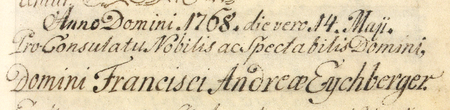 Anno Domini 1768. die vero 14. Maji.
Pro Consulatu Nobilis ac Spectabilis Domini,
Domini Francisci Andreæ Eychberger.